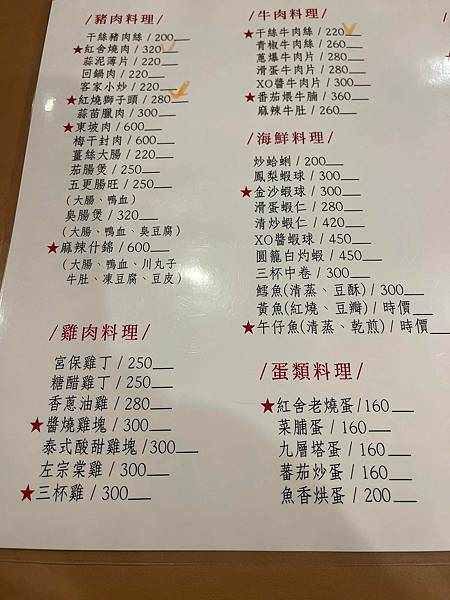 /豬肉料理/
干絲豬肉絲/200
★紅舍燒肉/320
蒜泥薄片/220
回鍋肉/220
客家小炒/220
★紅燒獅子頭/280
蒜苗臘肉/300
★東坡肉/600
梅干封肉/600
薑絲大腸/220
茄腸煲/250
五更腸旺/250
(大腸、鴨血)
臭腸煲/320
(大腸、鴨血、臭豆腐)
★麻辣什錦/600
(大腸、鴨血、川丸子
牛肚、凍豆腐、豆皮)
/雞肉料理/
宮保雞丁/250
糖醋雞丁/250
香蔥油雞/280
★醬燒雞塊/300
泰式酸甜雞塊/300
左宗棠雞/300
★三杯雞/300
/牛肉料理/
★干絲牛肉絲/220
青椒牛肉絲/260
蔥爆牛肉片/280
滑蛋牛肉片/280
XO醬牛肉片/300
★番茄煨牛腩/360
麻辣牛肚/260
/海鮮料理/
炒蛤蜊/200
鳳梨蝦球/300
★金沙蝦球/300
滑蛋蝦仁/280
清炒蝦仁/420
XO醬蝦球/450
圓籠白灼蝦/450
三杯中卷/300
鱈魚(清蒸、豆酥)/300
黃魚(紅燒、豆瓣)/時價
★午仔魚(清蒸、乾煎)/時價
/蛋類料理/
★紅舍老燒蛋/160
菜脯蛋/160
九層塔蛋/160
蕃茄炒蛋/160
魚香烘蛋/200